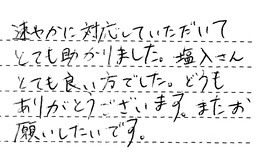 速やかに対応していただいて
とても助かりました。塩入さん
とても良い方でした。どうも
ありがとうございます。またお
願いしたいです。